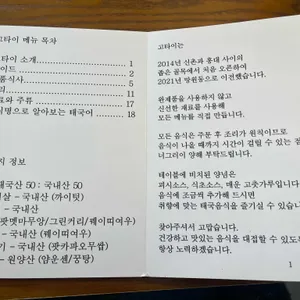 고타이 메뉴 목차
타이 소개 1
이드 5
품식사 6
리 11
료와 주류 17
식명으로 알아보는 태국어 18
지 정보
태국산 50 : 국내산
살 - 국내산 (카이텃)
- 국내산
팟멧마무앙/그린커리/웨이띠여우)
- 국내산 (웨이띠여우)
기 - 국내산 (팟카파오무쌉)
- 원양산 (얌운센/꿍탕)
고타이는
2014년 신촌과 홍대 사이의
좁은 골목에서 처음 오픈하여
2021년 망원동으로 이전했습니다.
완제품을 사용하지 않고
신선한 재료를 사용해
모든 메뉴를 직접 만듭니다.
모든 음식은 주문 후 조리가 원칙이므로
음식이 나올 때까지 시간이 걸릴 수 있는 점
너그러이 양해 부탁드립니다.
테이블에 비치된 양념은
피시소스, 식초소스, 매운 고춧가루입니다.
음식에 조금씩 추가해 드시면
취향에 맞는 태국음식을 즐기실 수 있습니다.
찾아주셔서 고맙습니다.
건강하고 맛있는 음식을 대접할 수 있도록
항상 노력하겠습니다.
1